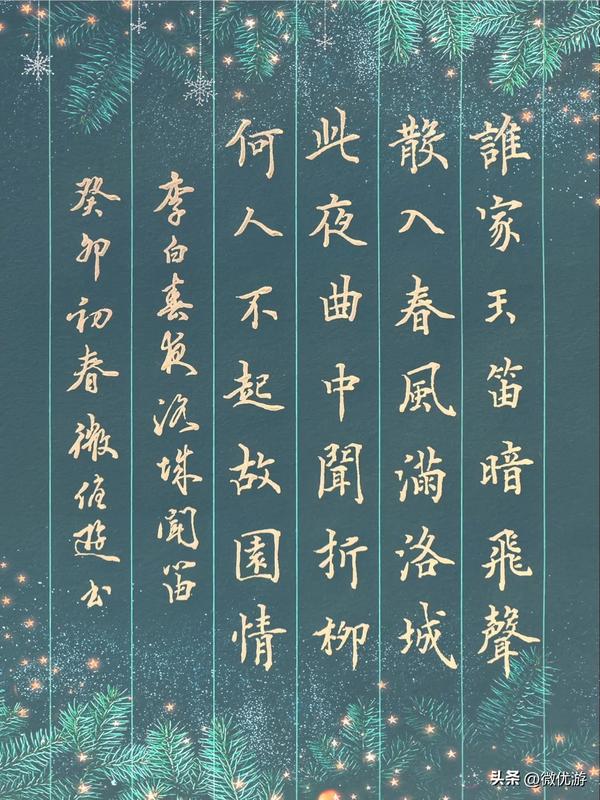 誰家玉笛暗飛聲
散入春風滿洛城
此夜曲中聞折柳
何人不起故園情
李白春夜洛城聞笛
癸卯初春微優遊书
头条 @微优游